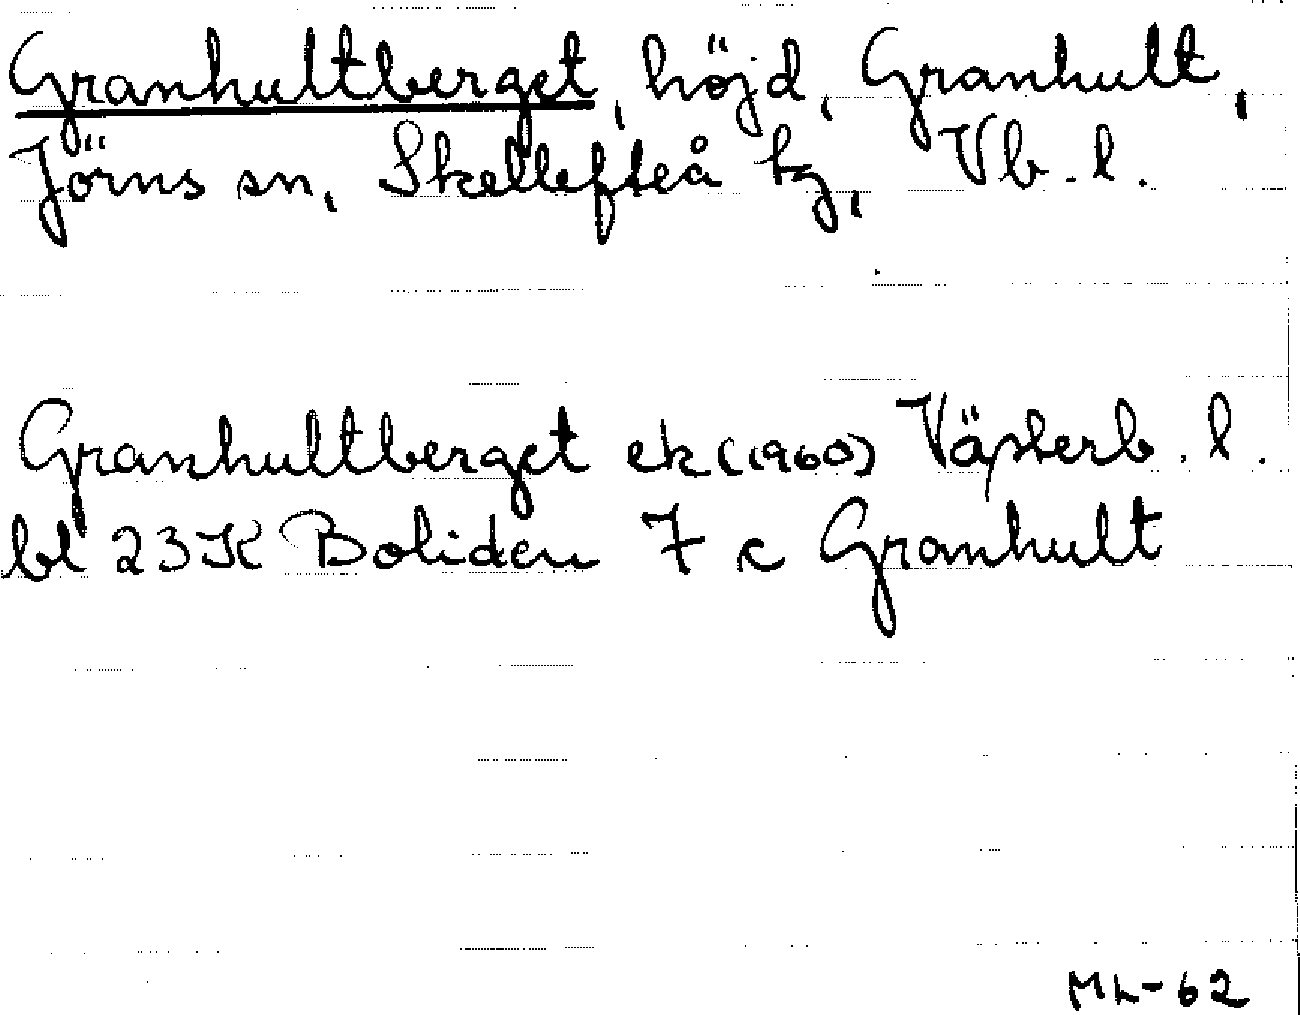 Granhultberget, höjd, Granhult,
Jörns sn, Skellefteå tg, Vb. l.
Granhultberget ek (1960) Västerb. l.
bl 23K Boliden 7 c Granhult
ML-62